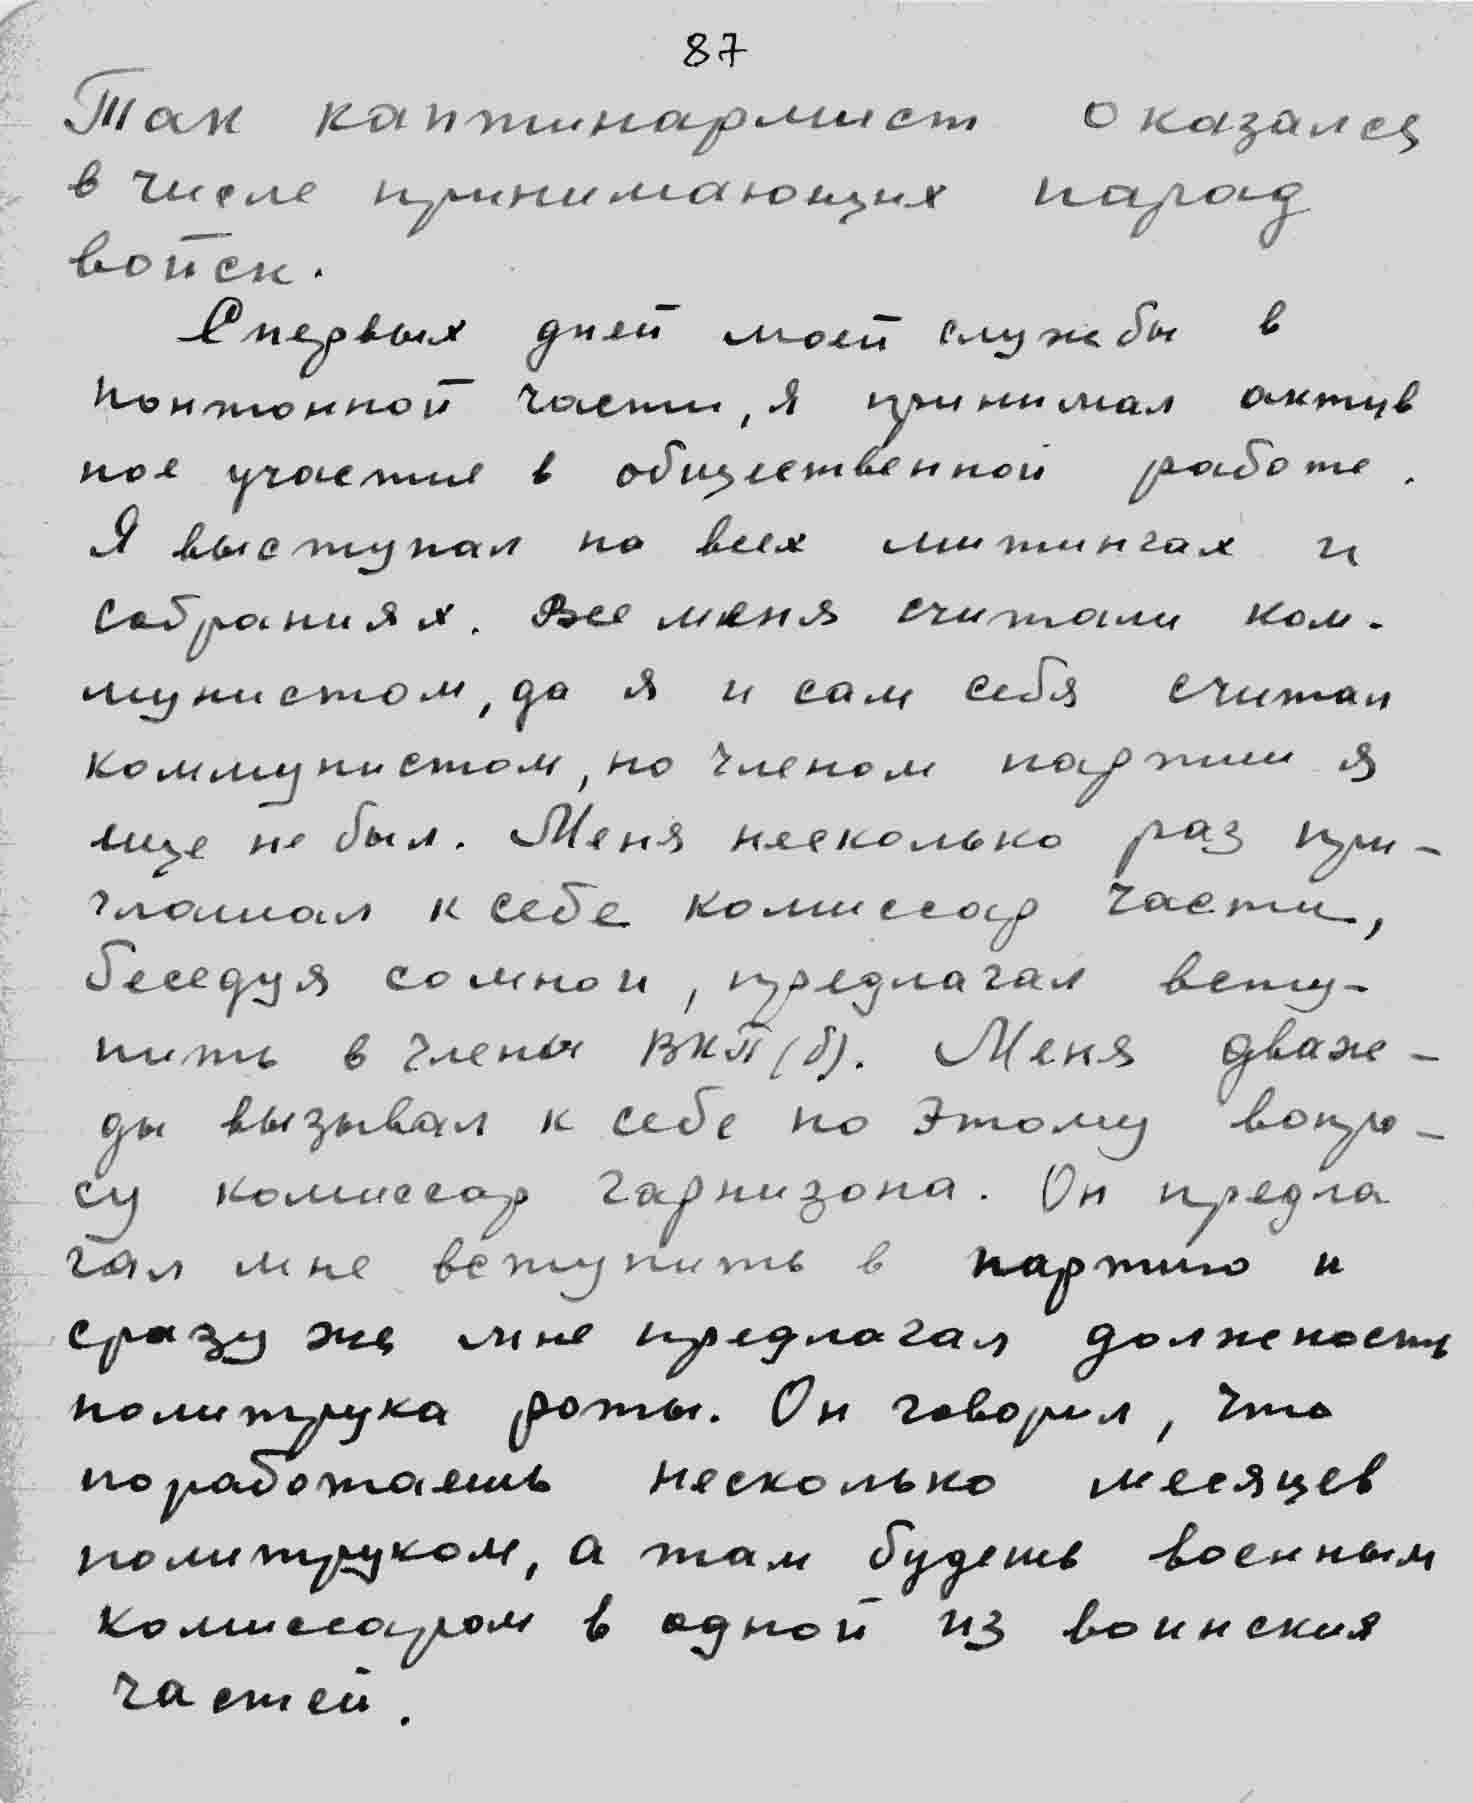 87
Так каптинармист оказался
в числе принимающих парад
войск.
С первых дней моей службы в
понтонной части, я принимал актив
ное участие в общественной работе.
Я выступал на всех митингах и
собраниях. Все меня считали ком-
мунистом, да я и сам себя считал
коммунистом, но членом партии я
еще не был. Меня несколько раз при-
глашал к себе комиссар части,
беседуя со мной, предлагал всту-
пить в члены ВКП(б). Меня дваж-
ды вызывал к себе по этому вопро-
су комиссар гарнизона. Он предла
гал мне вступить в партию и
сразу же мне предлагал должность
политрука роты. Он говорил, что
поработаешь несколько месяцев
политруком, а там будешь военным
комиссаром в одной из воинския
частей.